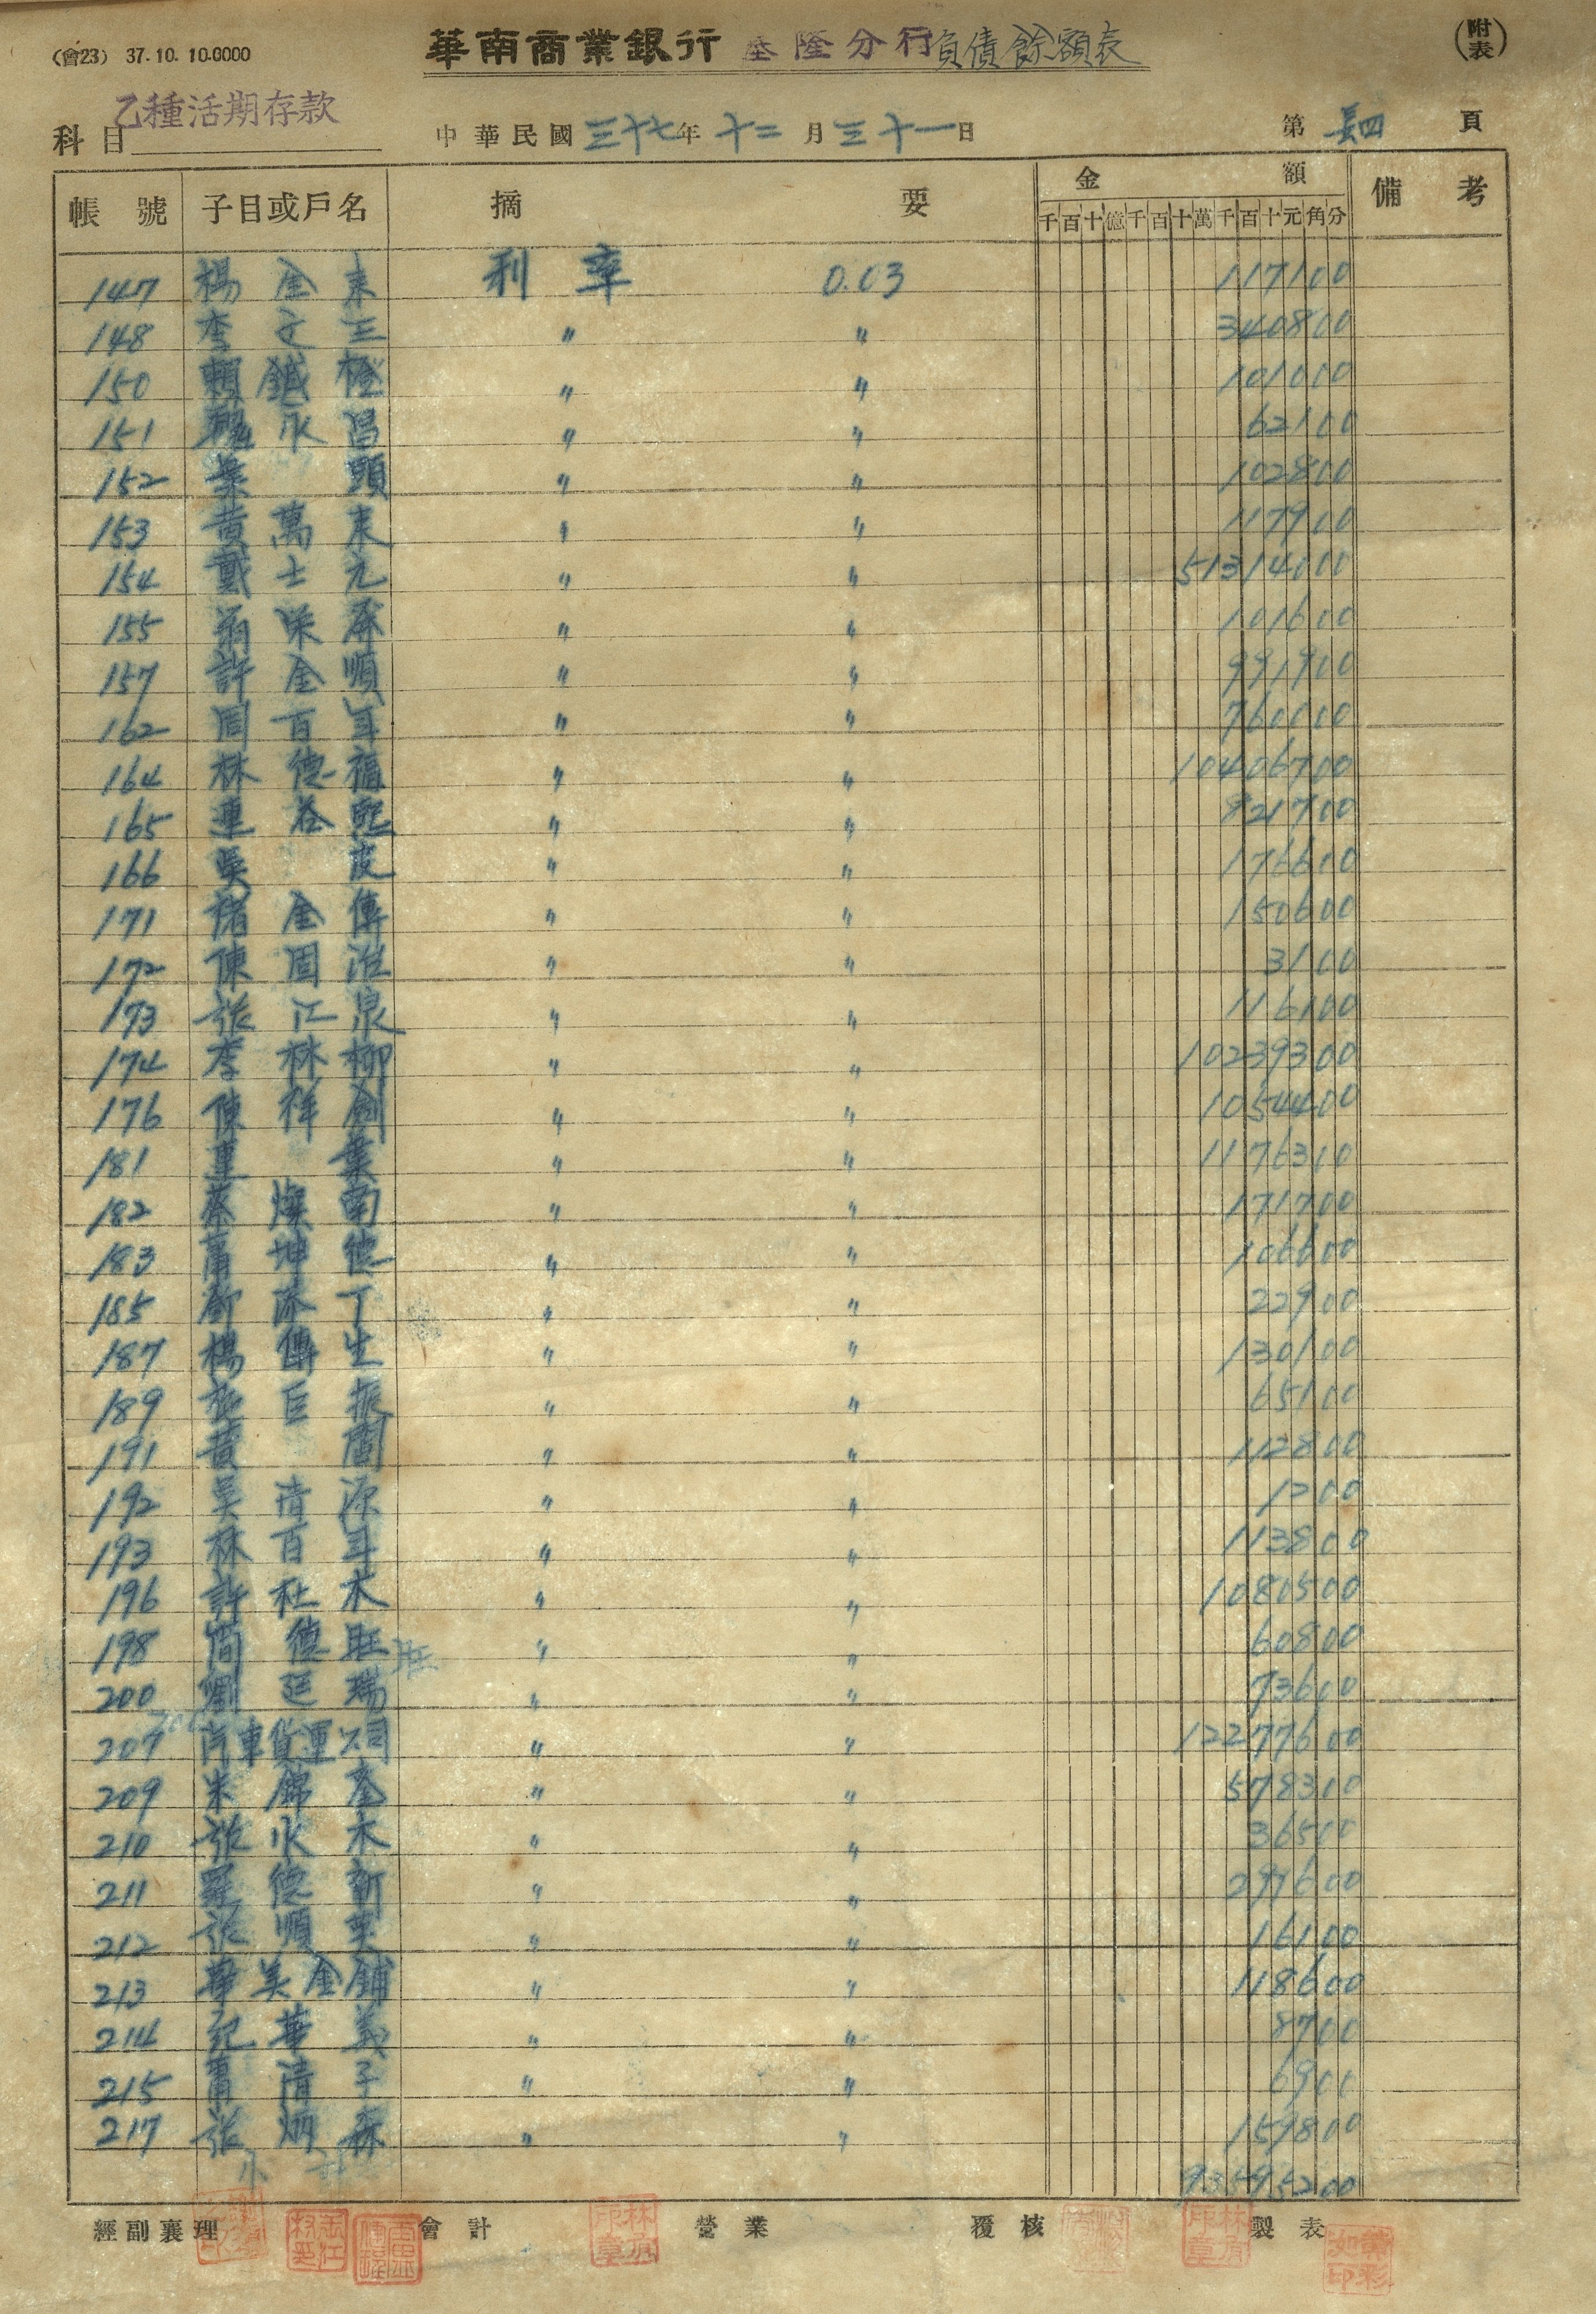 (會23) 37.10.10.0000
華南商業銀行 基隆分行負債餘額表
(附表)
乙種活期存款
科目
中華民國三十七年十二月三十一日
第 頁
帳號 子目或戶名 摘要 金額 備考
千百十億千百十萬千百十元角分
147 楊金來 利率 0.03 117100
148 李文三 〃 〃 340800
150 賴鉞橙 〃 〃 101000
151 永昌 〃 〃 62100
152 葉頭 〃 〃 102800
153 黃萬來 〃 〃 117900
154 戴士元 〃 〃 51314000
155 翁榮 〃 〃 101600
157 許金順 〃 〃 991900
162 周百年 〃 〃 760000
164 林德福 〃 〃 10406700
165 連谷熙 〃 〃 821700
166 吳皮 〃 〃 176600
171 褚金傳 〃 〃 150600
172 陳固 〃 〃 3100
173 張江泉 〃 〃 116100
174 李林柳 〃 〃 10239300
176 陳祥劍 〃 〃 1054400
181 連葉 〃 〃 1176300
182 蔡燦南 〃 〃 171700
183 蕭坤德 〃 〃 106600
185 添丁 〃 〃 22900
187 楊傳生 〃 〃 130100
189 巨振 〃 〃 65100
191 黃 〃 〃 112800
192 吳清源 〃 〃 1200
193 林百年 〃 〃 113800
196 許杜木 〃 〃 1080500
198 簡德旺 〃 〃 60800
200 劉廷瑞 〃 〃 73600
207 汽車貨運公司 〃 〃 12277600
209 朱錦奎 〃 〃 578300
210 張水木 〃 〃 36500
211 羅德新 〃 〃 297600
212 張順 〃 〃 16100
213 華美金鋪 〃 〃 118600
214 紀華義 〃 〃 8700
215 蕭清子 〃 〃 6900
217 張炳森 〃 〃 159800
小計 93595200
經副襄理 會計 營業 覆核 製表